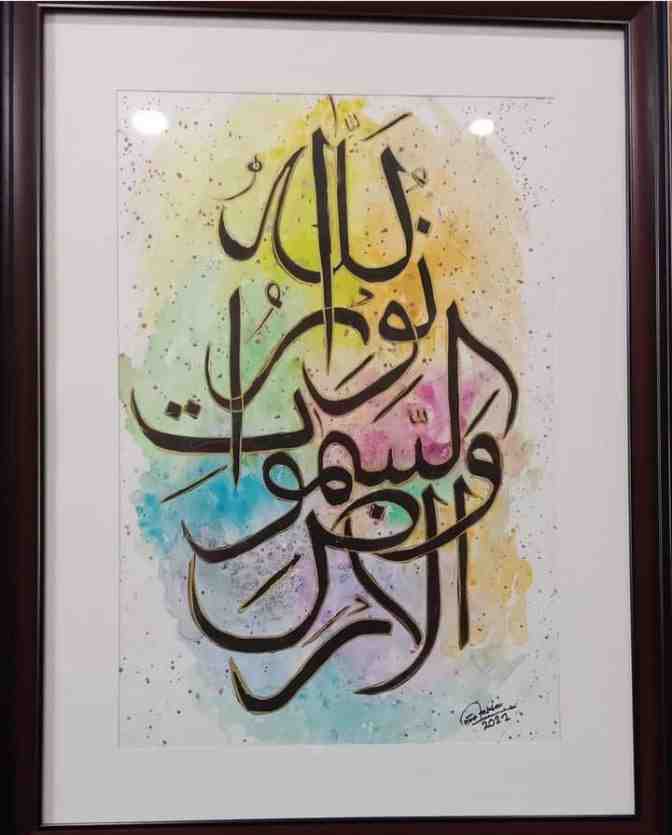 اللّٰهُ
نُورُ
السَّموات
والارض
2022